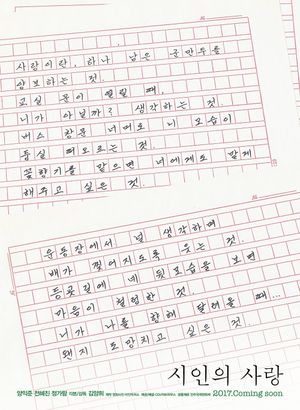 사랑이란, 하나 남은 군만두를
양보하는 것.
교실 문이 열릴 때,
니가 아닐까? 생각하는 것.
버스 창문 너머로 니 모습이
둥실 떠오르는 것.
꽃향기를 맡으면 너에게도 맡게
해주고 싶은 것.
운동장에서 널 생각하며
배가 찢어지도록 웃는 것.
등굣길에 네 뒷모습을 보면
가슴이 철렁한 것.
니가 나를 향해 달려올 때...
왠지 도망치고 싶은 것.
시인의 사랑
양익준 전혜진 정가람 각본/감독 김양희
2017.Coming soon